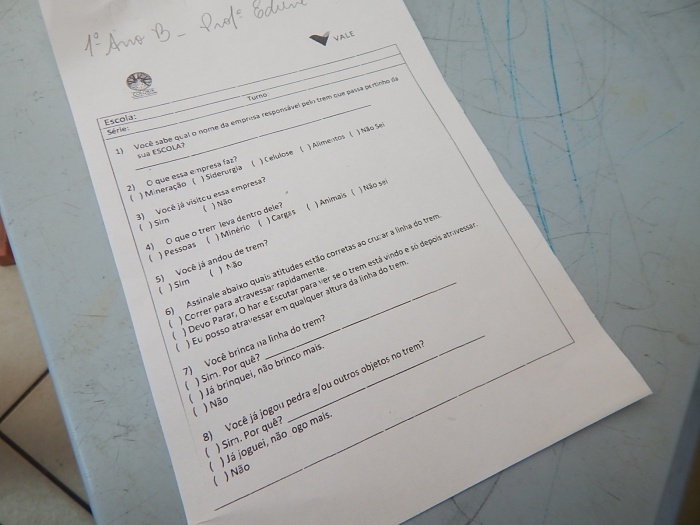 1º Ano B - Profª Ediene
VALE
Escola:
Série: Turno
1) Você sabe qual o nome da empresa responsável pelo trem que passa pertinho da
sua ESCOLA?
2) O que essa empresa faz?
( ) Mineração ( ) Siderurgia ( ) Celulose ( ) Alimentos ( ) Não Sei
3) Você já visitou essa empresa?
( ) Sim ( ) Não
4) O que o trem leva dentro dele?
( ) Pessoas ( ) Minério ( ) Cargas ( ) Animais ( ) Não sei
5) Você já andou de trem?
( ) Sim ( ) Não
6) Assinale abaixo quais atitudes estão corretas ao cruzar a linha do trem.
( ) Correr para atravessar rapidamente.
( ) Devo Parar, Olhar e Escutar para ver se o trem está vindo e só depois atravessar.
( ) Eu posso atravessar em qualquer altura da linha do trem.
7) Você brinca na linha do trem?
( ) Sim. Por quê?
( ) Já brinquei, não brinco mais.
( ) Não
8) Você já jogou pedra e/ou outros objetos no trem?
( ) Sim. Por quê?
( ) Já joguei, não jogo mais.
( ) Não